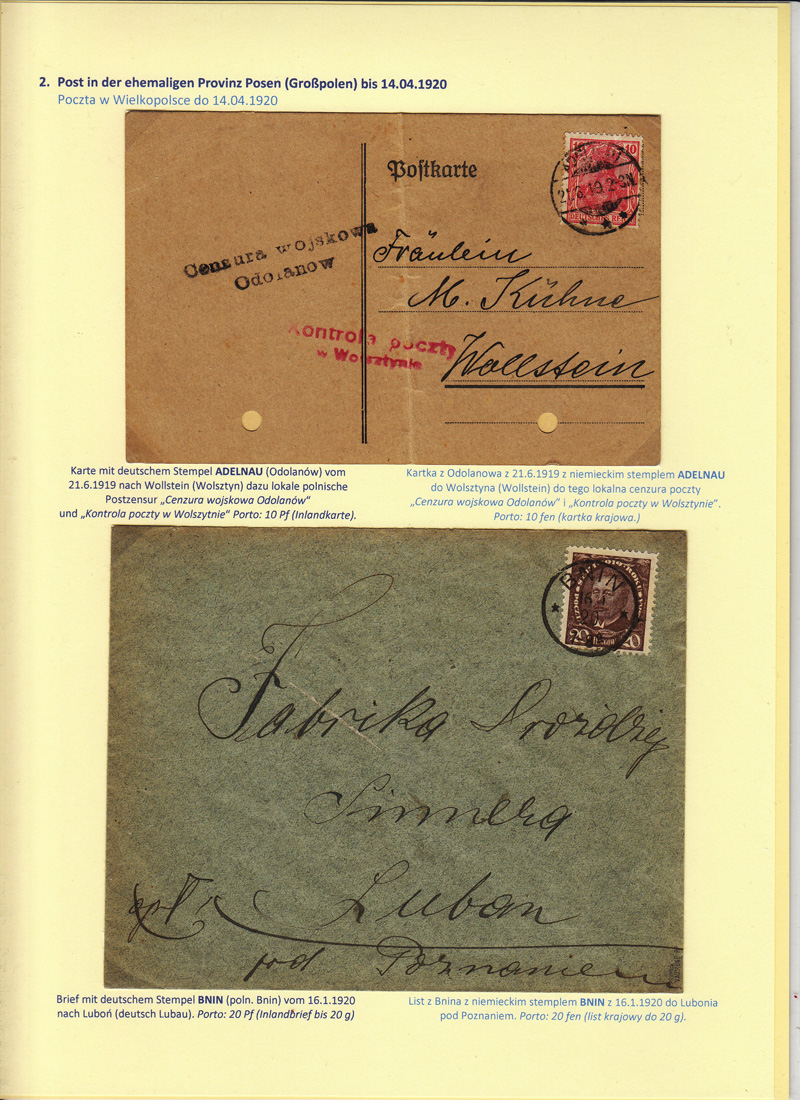 2. Post in der ehemaligen Provinz Posen (Großpolen) bis 14.04.1920
Poczta w Wielkopolsce do 14.04.1920
Postkarte
10
21.6.19. 2-3N.
DEUTSCHES REICH
Cenzura wojskowa
Odolanow
Fräulein
M. Kühne
Wollstein
Kontrola poczty
w Wolsztynie
Karte mit deutschem Stempel ADELNAU (Odolanów) vom
21.6.1919 nach Wollstein (Wolsztyn) dazu lokale polnische
Postzensur „Cenzura wojskowa Odolanów“
und „Kontrola poczty w Wolszytnie“ Porto: 10 Pf (Inlandkarte).
Kartka z Odolanowa z 21.6.1919 z niemieckim stemplem ADELNAU
do Wolsztyna (Wollstein) do tego lokalna cenzura poczty
„Cenzura wojskowa Odolanów“ i „Kontrola poczty w Wolsztynie“.
Porto: 10 fen (kartka krajowa.)
BNIN
20 20
Fabrika Drożdży
Sinnera
Luban
pod Poznaniem
Brief mit deutschem Stempel BNIN (poln. Bnin) vom 16.1.1920
nach Luboń (deutsch Lubau). Porto: 20 Pf (Inlandbrief bis 20 g)
List z Bnina z niemieckim stemplem BNIN z 16.1.1920 do Lubonia
pod Poznaniem. Porto: 20 fen (list krajowy do 20 g).